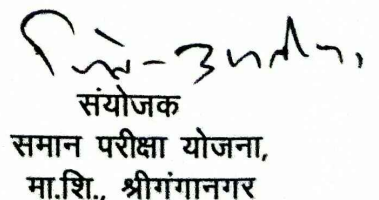 संयोजक
समान परीक्षा योजना,
मा.शि., श्रीगंगानगर